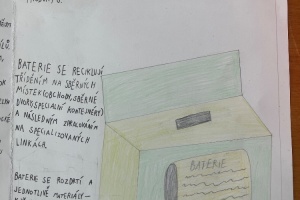 BATERIE SE RECIKLUJÍ
TŘÍDĚNÍM NA SBĚRNÝCH
MÍSTECH (OBCHODY, SBĚRNÉ
DVORY, SPECIÁLNÍ KONTEJNERY)
A NÁSLEDNÝM ZPRACOVÁNÍM
NA SPECIALIZOVANÝCH
LINKÁCH.
BATERIE SE ROZDRTÍ A
JEDNOTLIVÉ MATERIÁLY -
BATERIE